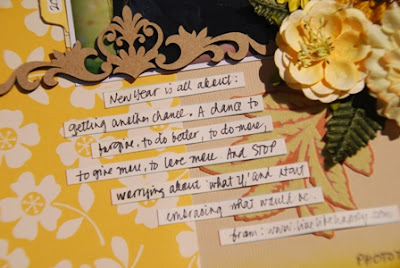 20
New Year is all about:
getting another chance. A chance to
forgive, to do better, to do more,
to give more, to love more. And STOP
worrying about 'what if' and start
embracing what would be.
from: www.
PROTOT